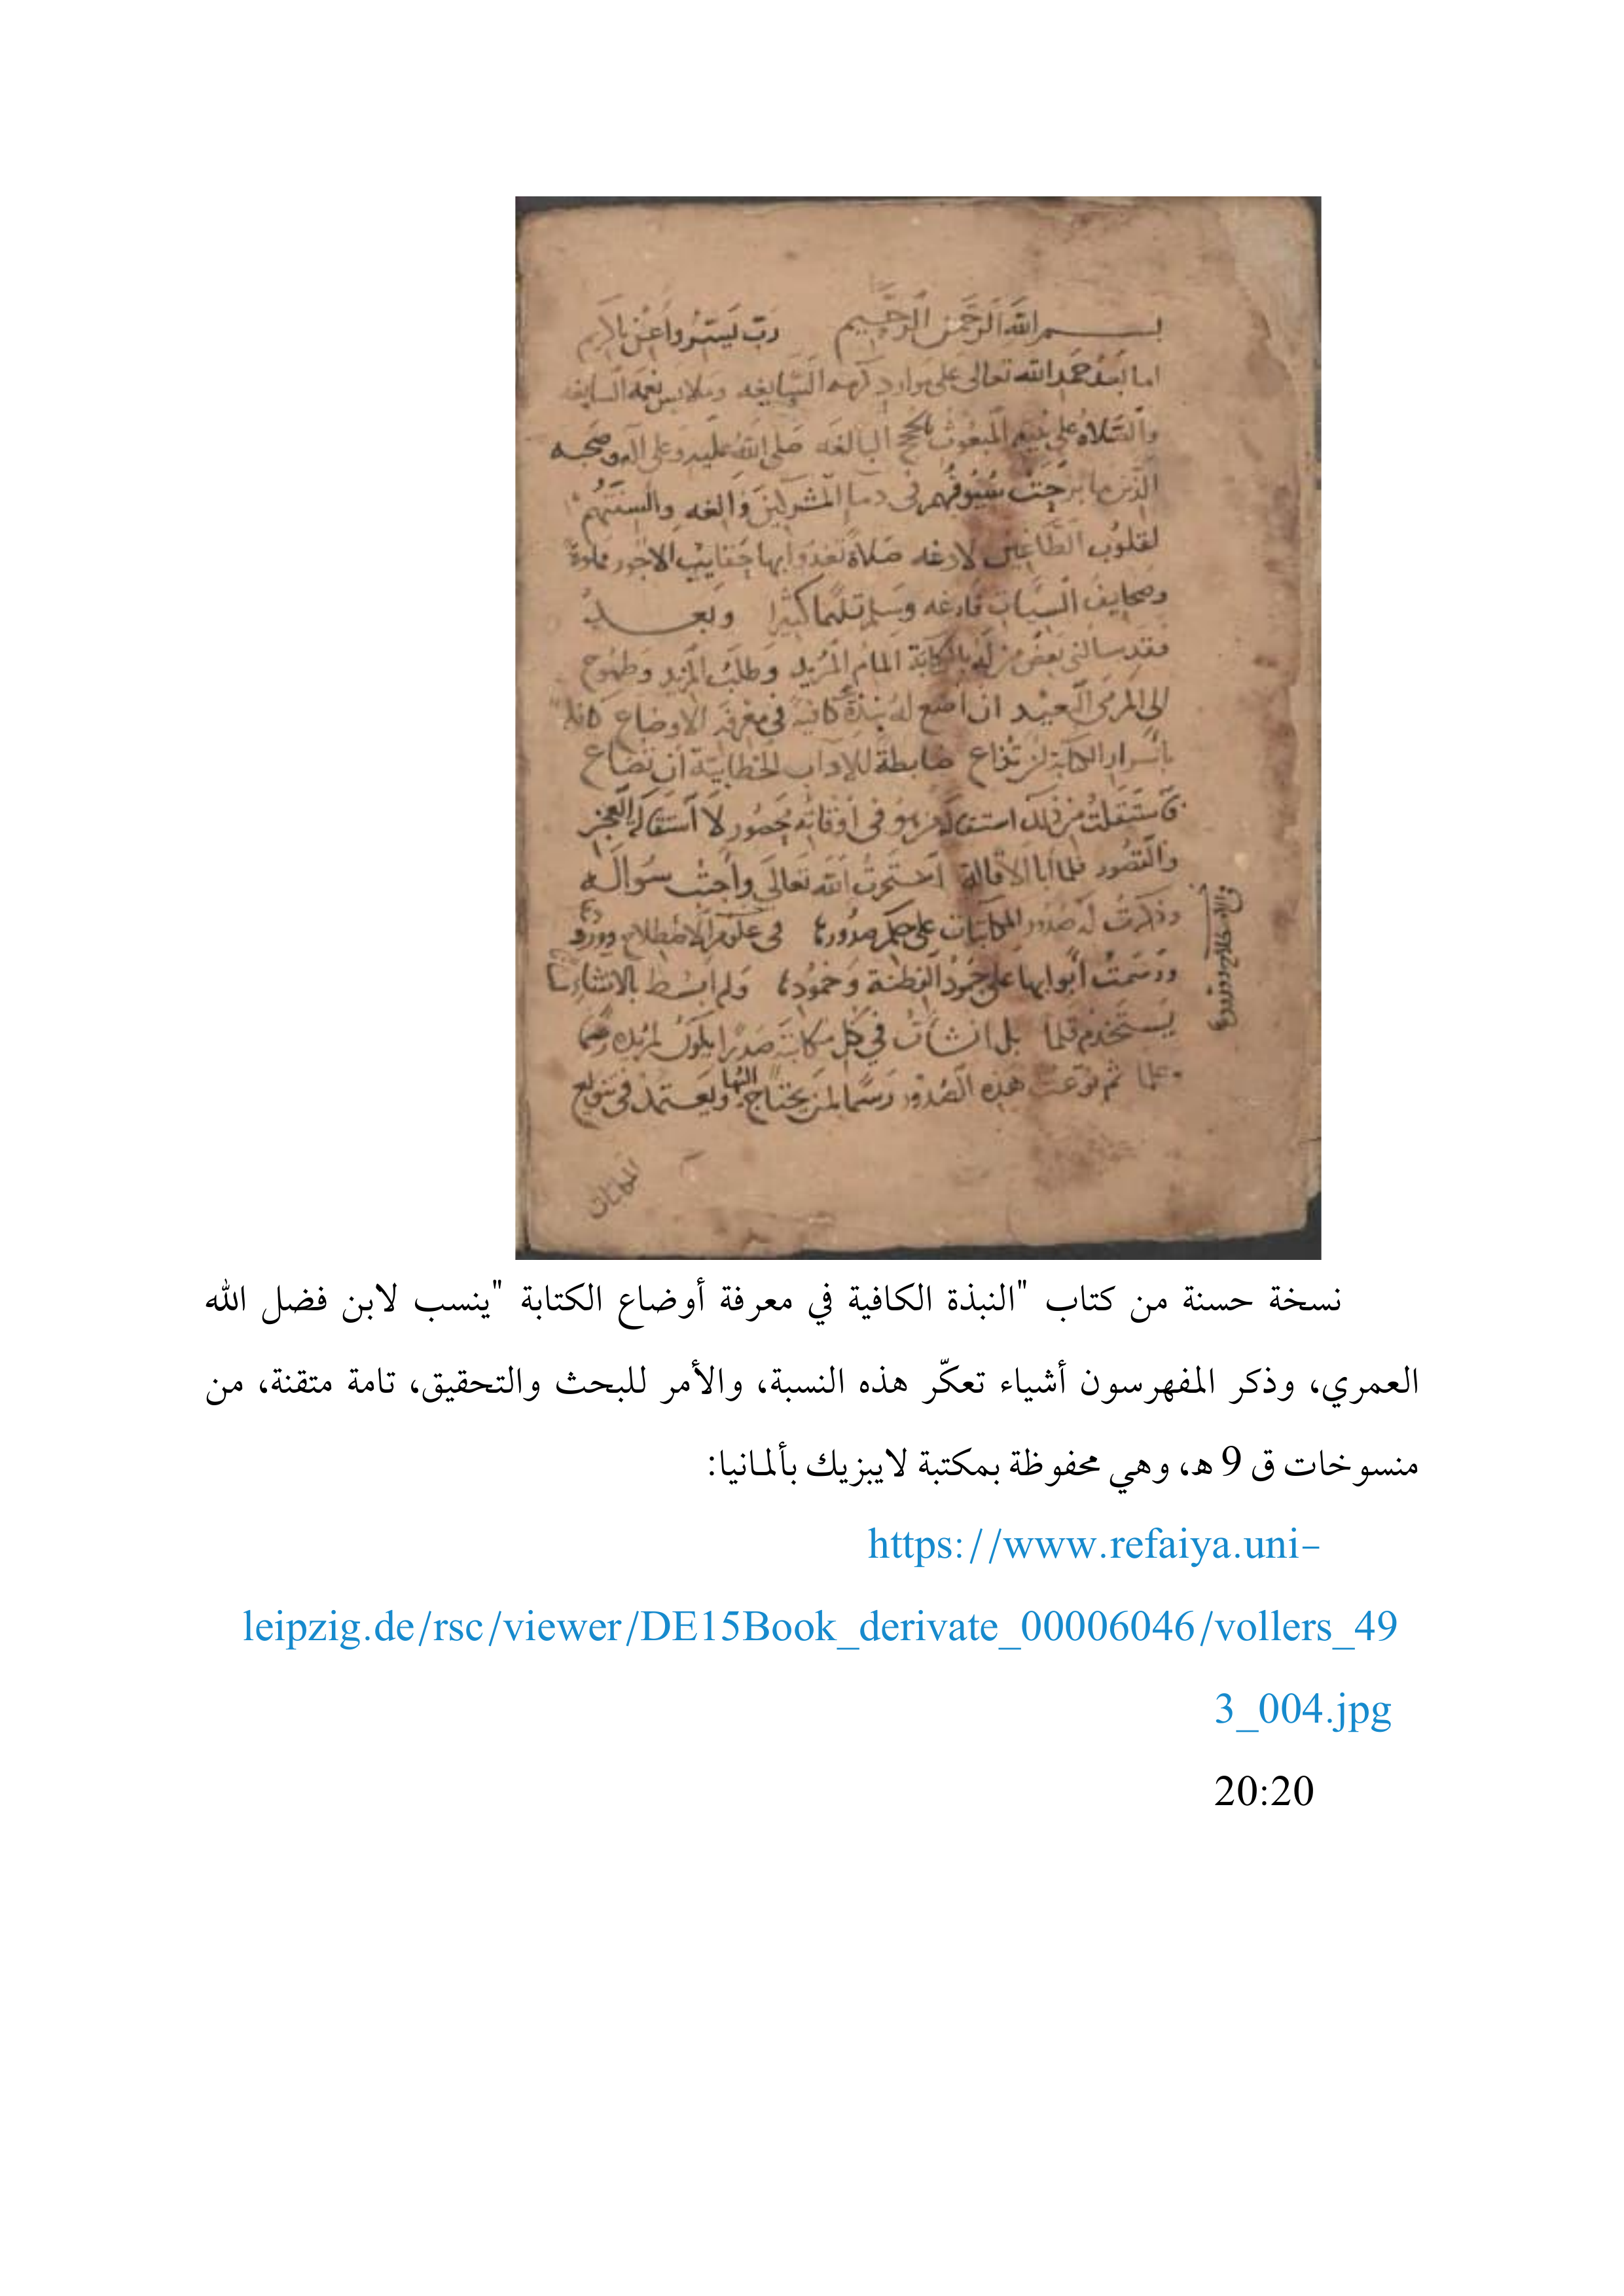 بسم الله الرحمن الرحيم رب يسر واعن يا كريم
اما بعد حمد الله تعالى على موارد السايغه وملابس نعمه السابغه
والصلاة على نبيه المبعوث بالحجج البالغه صلى الله عليه وعلى آله وصحبه
الذين ما برحت سيوفهم في دما المشركين والغه والسنتهم
لقلوب الطاغين لادغه صلاة تغدوا بها حقايب الاجور
وصحايف السيات فارغه وسلم تسليما كثيرا وبعد
فقد سالني بعض من له بالكتابة المام المريد وطلب المزيد وطموح
الى المرمى البعيد ان اضع له نبذة كافية في معرفة الاوضاع
باسرار الكتابة لن تذاع ضابطة للاداب الخطابية ان تضاع
فاستقلت من ذلك استقالة من هو في اوقاته محصور لا استقالة العجز
والقصور فلما ابا الاقالة استخرت الله تعالى واجبت سواله
وذكرت له صدور المكاتبات على حكم صدورها في علوم الاصطلاح
ورسمت ابوابها على جمود الفطنة وخمودها ولم ابسط بالانشاء
يستخدم قلما بل انشات في كل مكاتبة صدرا يكون لمريده
وعلما ثم نوعت هذه الصدور رسما لمن يحتاج اليها ويعتمد في تنويع
المكاتبات
نسخة حسنة من كتاب "النبذة الكافية في معرفة أوضاع الكتابة "ينسب لابن فضل الله
العمري، وذكر المفهرسون أشياء تعكّر هذه النسبة، والأمر للبحث والتحقيق، تامة متقنة، من
منسوخات ق 9 هـ، وهي محفوظة بمكتبة لايبزيك بألمانيا:
https://www.refaiya.uni-
leipzig.de/rsc/viewer/DE15Book_derivate_00006046/vollers_49
3_004.jpg
20:20